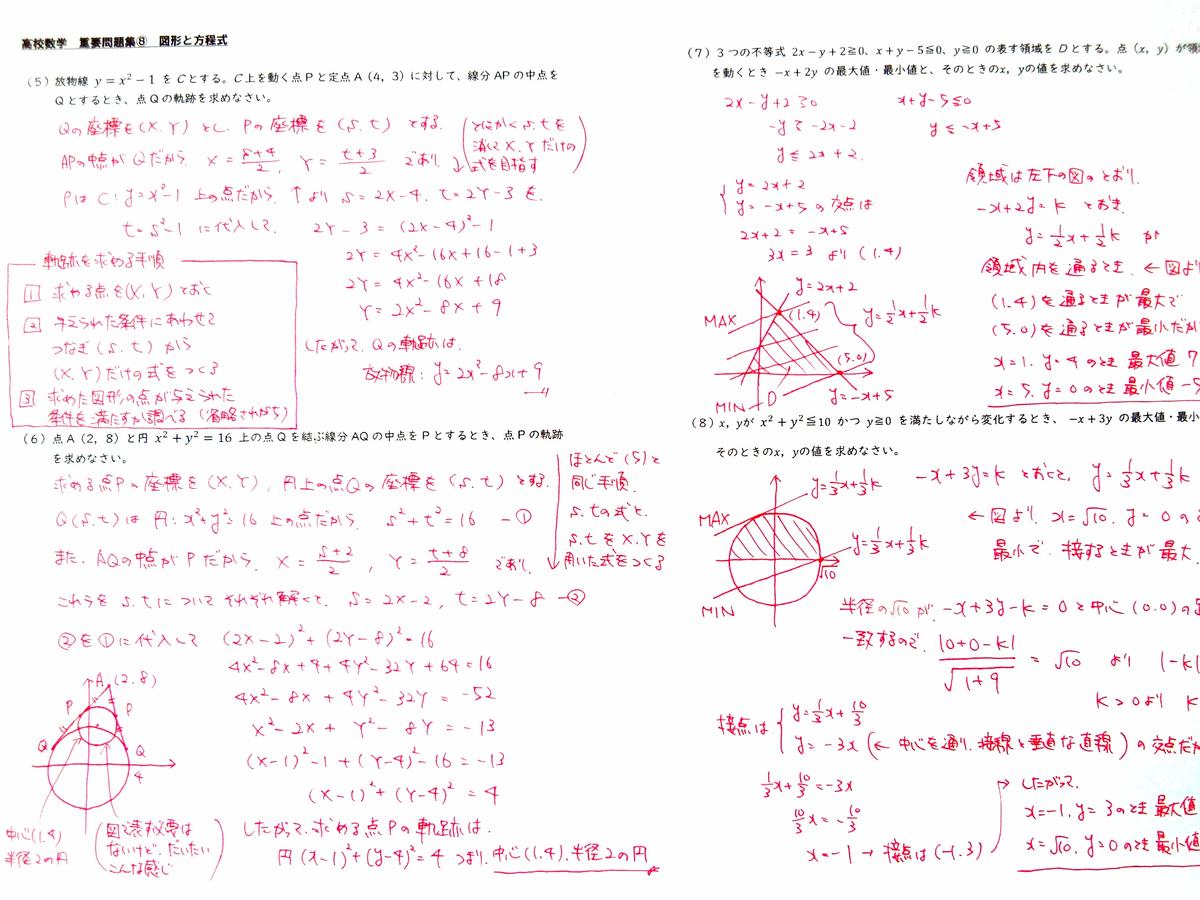 高校数学 重要問題集⑧ 図形と方程式
(5) 放物線 y=x²−1 を Cとする。C上を動く点Pと定点A(4, 3)に対して、線分APの中点を
Qとするとき、点Qの軌跡を求めなさい。
Qの座標を(X, Y)とし、Pの座標を(s, t)とする。
(とにかくs, tを
消してX, Yだけの
式を目指す)
APの中点がQだから、X=(s+4)/2, Y=(t+3)/2 であり、
PはC:y=x²−1 上の点だから、↑よりs=2X−4, t=2Y−3を、
t=s²−1 に代入して、 2Y−3=(2X−4)²−1
2Y=4X²−16X+16−1+3
2Y=4X²−16X+18
Y=2X²−8X+9
したがって、Qの軌跡は、
放物線:y=2x²−8x+9
軌跡を求める手順
1 求める点を(X, Y)とおく
2 与えられた条件にあわせて
つなぎ(s, t)から
(X, Y)だけの式をつくる
3 求めた図形の点が与えられた
条件を満たすか調べる(省略されがち)
(6) 点A(2, 8)と円 x²+y²=16 上の点Qを結ぶ線分AQの中点をPとするとき、点Pの軌跡
を求めなさい。
求める点Pの座標を(X, Y), 円上の点Qの座標を(s, t)とする。
ほとんど(5)と
同じ手順。
s, tの式と、
s, tをX, Yを
用いた式をつくる
Q(s, t)は円:x²+y²=16 上の点だから、 s²+t²=16 −①
また、AQの中点がPだから、X=(s+2)/2, Y=(t+8)/2 であり、
これらをs, tについてそれぞれ解くと、s=2X−2, t=2Y−8 −②
②を①に代入して (2X−2)²+(2Y−8)²=16
4X²−8X+4+4Y²−32Y+64=16
4X²−8X+4Y²−32Y=−52
X²−2X+Y²−8Y=−13
(X−1)²−1+(Y−4)²−16=−13
(X−1)²+(Y−4)²=4
したがって、求める点Pの軌跡は、
円(x−1)²+(y−4)²=4 つまり、中心(1, 4), 半径2の円
A(2, 8)
P
P
Q
Q
4
中心(1, 4)
半径2の円
(図で表す必要は
ないけど、だいたい
こんな感じ)
(7) 3つの不等式 2x−y+2≧0、x+y−5≦0、y≧0 の表す領域を Dとする。点(x, y)が領
を動くとき −x+2y の最大値・最小値と、そのときのx, yの値を求めなさい。
2x−y+2≧0 x+y−5≦0
−y≧−2x−2 y≦−x+5
y≦2x+2.
y=2x+2
y=−x+5 の交点は
2x+2=−x+5
3x=3 より (1, 4)
領域は左下の図のとおり。
−x+2y=k とおき、
y=1/2x+1/2k が
領域内を通るとき、←図より
(1, 4)を通るときが最大で
(5, 0)を通るときが最小だか
x=1, y=4のとき 最大値 7
x=5, y=0のとき 最小値 −5
y=2x+2
MAX
(1, 4)
y=1/2x+1/2k
(5, 0)
MIN
D
y=−x+5
(8) x, yが x²+y²≦10 かつ y≧0 を満たしながら変化するとき、 −x+3y の最大値・最小
そのときのx, yの値を求めなさい。
−x+3y=k とおくと, y=1/3x+1/3k
←図より、x=√10, y=0の
最小で、接するときが最大
y=1/3x+1/3k
MAX
y=1/3x+1/3k
√10
MIN
半径の√10が、−x+3y−k=0と中心(0, 0)の
一致するので、 |0+0−k|/√(1+9) = √10 より |−k|
k>0より k
接点は y=1/3x+10/3
y=−3x (←中心を通り、接線と垂直な直線)の交点だか
1/3x+10/3=−3x
10/3x=−10/3
x=−1 → 接点は(−1, 3)
したがって、
x=−1, y=3のとき 最大値
x=√10, y=0のとき 最小値